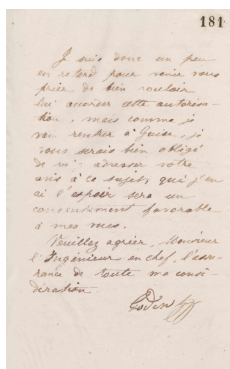 181
Je suis donc un peu
en retard pour venir vous
prier de bien vouloir
lui accuser cette autorisa-
tion, mais comme je
vais rentrer à Guise, je
vous serais bien obligé
de m'adresser votre
avis à ce sujet, qui j'en
ai l'espoir sera un
consentement favorable
à mes vues.
Veuillez agréer, Monsieur
l'Ingénieur en chef, l'assu-
rance de toute ma consi-
dération
Godin